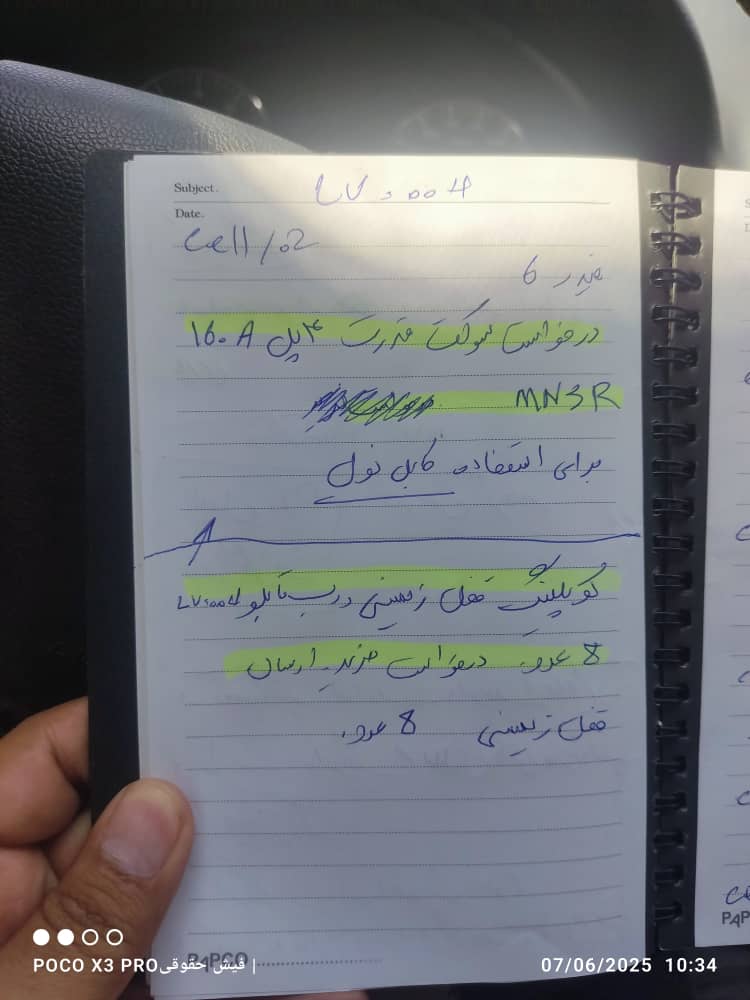 Subject. LV 0004
Date.
Cell / 02
فیدر 6
درخواست سوکت قدرت ۴ پل 160 A
MNSR
برای استفاده کابل نول
کوپلینگ قفل زمینی درب تابلو LV0004
8 عدد درخواست خرید ارسال
قفل زمینی 8 عدد
PAPCO
PAP
POCO X3 PRO فیش حقوقی |
07/06/2025 10:34